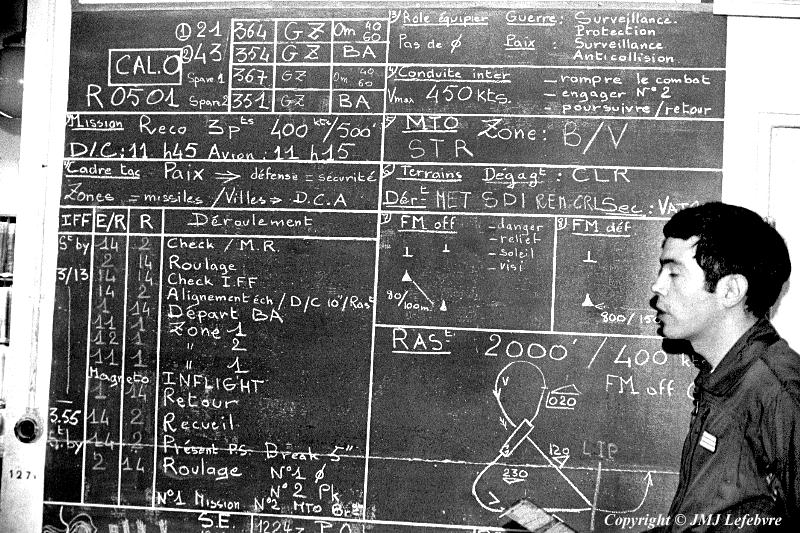 ① 21 364 GZ Om 40 60
② 43 354 GZ BA
CAL.O Spare 1 367 GZ Om 40 60
R 0501 Spare 2 351 GZ BA
Mission Reco 3 pts 400 kts/500'
D/C: 11 h45 Avion: 11 h15
Cadre tac Paix ⇒ défense = sécurité
Zones = missiles /Villes ⇒ D.C.A
IFF E/R R Déroulement
St by 14 2 Check / M.R.
2 14 Roulage
3/13 14 14 Check I.FF
14 2 Alignement éch / D/C 10"/Rast
1 14 Départ BA
11 1 Zone 1
12 1 " 2
11 1 " 3
Magneto INFLIGHT
1 14 Retour
3.55 14 2 Recueil
St.by 14 2 Présent P.S. Break 5"
2 14 Roulage N°1 Ø
N°2 Pk
N°1 Mission N°2 MTO
S.E. 1224
3/ Role équipier Guerre: Surveillance.
Protection
Pas de Ø Paix: Surveillance
Anticollision
4/ Conduite inter _ rompre le combat
Vmax 450 Kts. _ engager N°2
_ poursuivre/retour
5/ MTO Zone: B/V
STR
6/ Terrains Dégagt: CLR
Dért MET SDI REN.CRL Sec: VAT
7/ FM off _ danger
_ relief
_ soleil
_ visi
80/100m.
8/ FM déf
800/15
RASt 2000'/400 k
FM off
V
020
120
230
LIP
127.
Copyright © JMJ Lefebvre